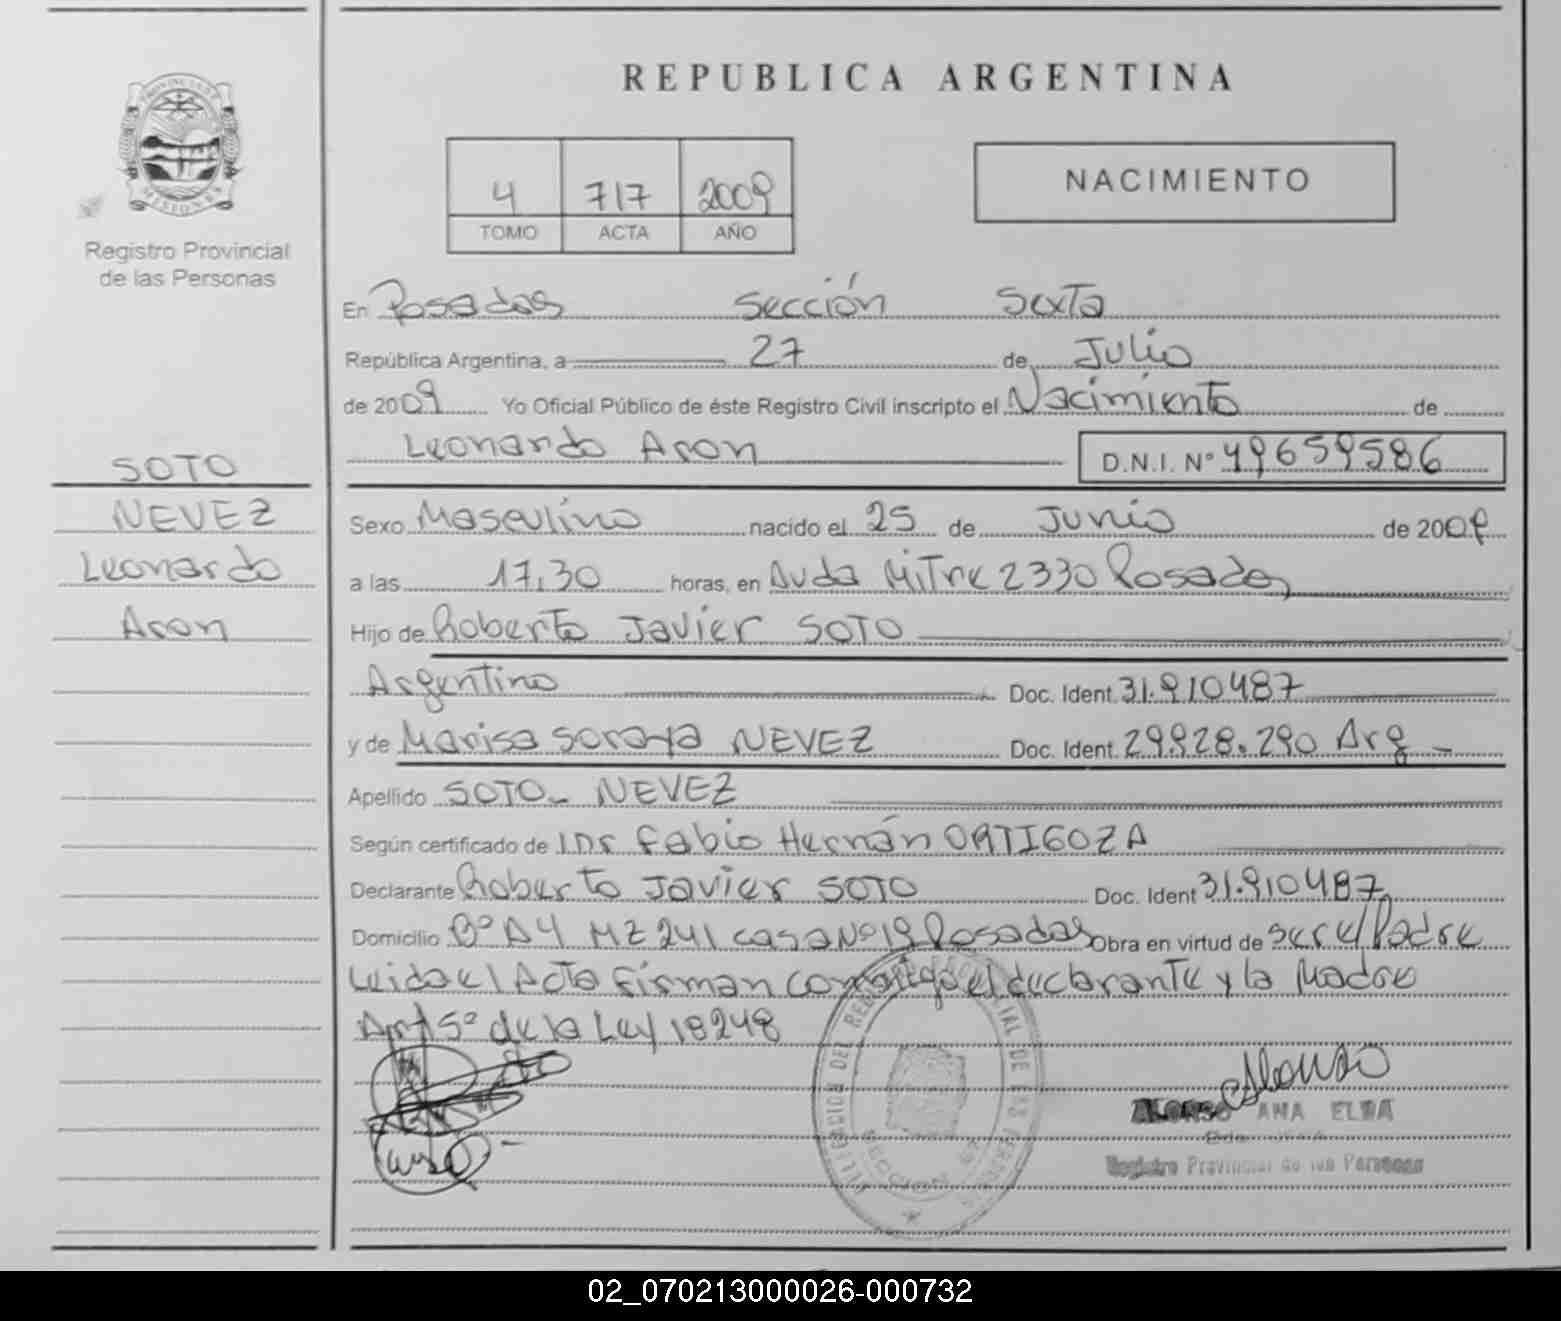 REPUBLICA ARGENTINA
PROVINCIA DE
MISIONES
Registro Provincial
de las Personas
4 717 2009
TOMO ACTA AÑO
NACIMIENTO
En Posadas Sección Sexta
República Argentina, a 27 de Julio
de 2009 Yo Oficial Público de éste Registro Civil inscripto el Nacimiento de
Leonardo Aron D.N.I. Nº 49659586
SOTO
NEVEZ
Leonardo
Aron
Sexo Masculino nacido el 25 de Junio de 2009
a las 17,30 horas, en Avda Mitre 2330 Posadas
Hijo de Roberto Javier SOTO
Argentino Doc. Ident. 31.910487
y de Marisa Soraya NEVEZ Doc. Ident. 29.928.290 Arg -
Apellido SOTO - NEVEZ
Según certificado de Fabio Hernán ORTIGOZA
Declarante Roberto Javier SOTO Doc. Ident 31.910487
Domicilio Bº A4 MZ 241 casa Nº 19 Posadas Obra en virtud de ser el Padre
Leida el Acta firman conmigo el declarante y la Madre
Art 5º de la Ley 18248
Alonso
ALONSO ANA ELBA
Registro Provincial de las Personas
SECCION 6ª
02_070213000026-000732